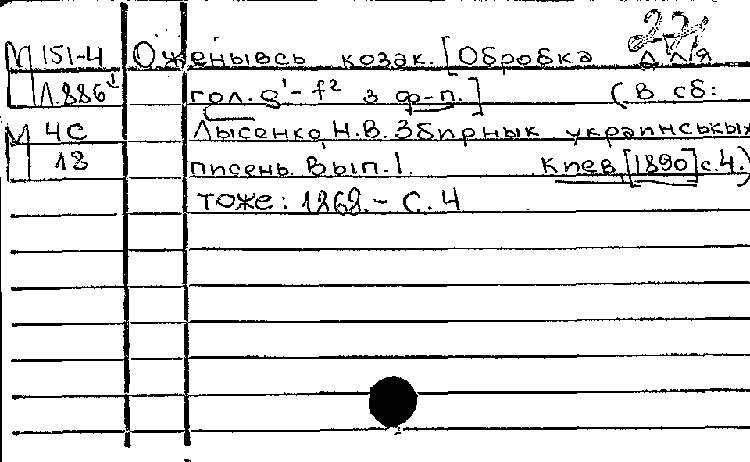 22
М 151-4 Оженывсь козак. [Обробка для
Л.886¹ гол. g¹-f² з ф-п.] (В сб:
М 4С Лысенко, Н.В. Збирнык украинськых
18 писень. Вып.1. Киев, [1890] с.4.)
тоже: 1868.- С. 4